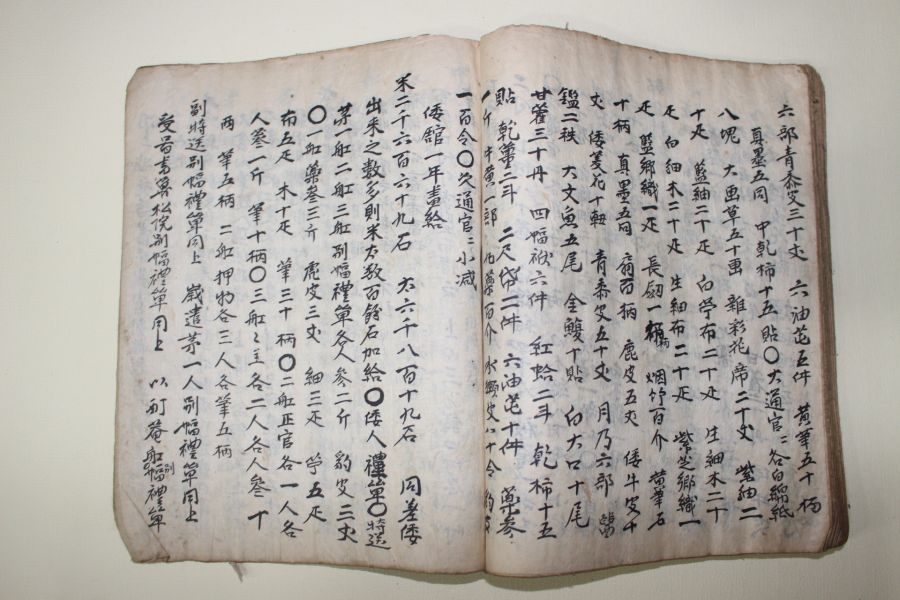 六部青黍皮三十丈 六油芚五件 黃筆五十柄
真墨五同 中乾柿十五貼〇大通官二各白綿紙
八塊 大畵草五十畵 雜彩花席二十丈 紫紬二
十疋 藍紬二十疋 白苧布二十疋 生細木二十
疋 白細木二十疋 生細布二十疋 紫芝鄕織一
疋 藍鄕織一疋 長劒一柄 烟竹百介 黃筆百
十柄 真墨五同 扇百柄 鹿皮五丈 倭牛皮十
丈 倭菱花十軸 青黍皮五十丈 月乃六部
鑑二秩 大文魚五尾 全鰒十貼 白大口十尾
甘藿三十丹 四幅袱六件 紅蛤二斗 乾柿十五
貼 乾薑二斗 二尺帒一件 六油芚十件 藥參
一斤 牛黃一部 百介 水獺皮八十令
一百令〇次通官二小減
倭館一年責給
米二千六百六十九石 太六千八百十九石 同差倭
出來之數多則米太數百餘石加給〇倭人禮單〇特送
苐一舡二舡三舡別幅禮單各人參二斤 豹皮二丈
〇一舡藥參三斤 鹿皮三丈 紬三疋 苧五疋
布五疋 木十疋 筆三十柄〇二舡正官各一人各
人參一斤 筆十柄〇三舡二主各二人各人參一十
兩 筆五柄 二舡押物各三人各筆五柄
副特送別幅禮單同上 歲遣苐一人別幅禮單同上
受啚書萬松院別幅禮單同上 以酊菴舡別幅禮單